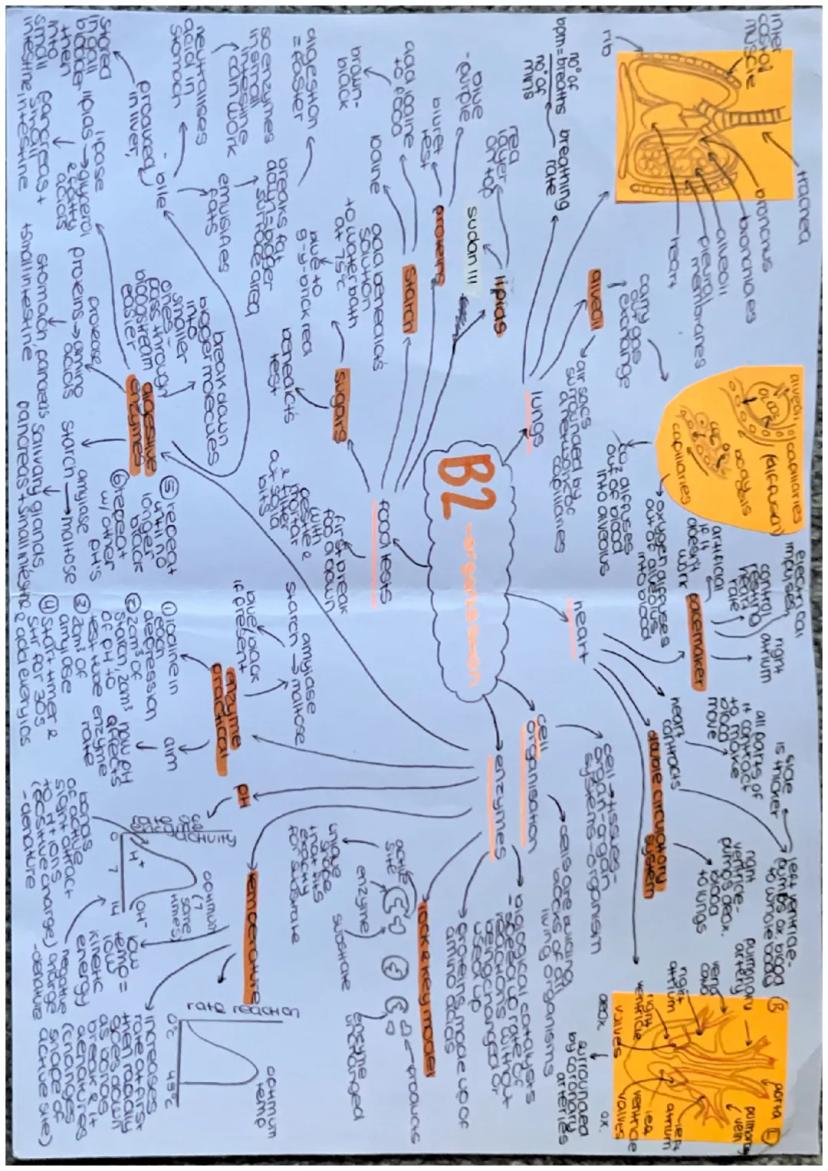 B2
-organisation
lungs
inter
costal
muscle
rib
trachea
bronchus
bronchioles
alveoli
pleural
membranes
heart
breathing
rate
bpm = breaths
no° of
mins
alveoli
carry out gas
exchange
air sacs
surrounded by
a network of
capillaries
co2 diffuses
out of blood
into alveolus
oxygen diffuses
out of alveolus
into blood
alveoli
capillaries
(diffusion)
oxygen
capillaries
heart
pacemaker
electrical
impulses
control
resting
heart
rate
right
atrium
artificial
if it
doesn't
work
heart
contracts
all parts of
it contract
to make
blood
move
double circulatory
system
left ventricle-
pumps ox. blood
to whole body
side
is thicker
right
ventricle-
pumps deox.
blood
to lungs
R
L
pulmonary
artery
vena
cava
right
atrium
right
ventricle
valves
aorta
pulmonary
vein
left
atrium
left
ventricle
valves
deox.
ox.
surrounded
by coronary
arteries
cell
organisation
cell → tissues-
organ-organ
systems-organism
cells are building
blocks of all
living organisms
enzymes
biological catalysts
-speed up rate of
reactions without
being changed or
used up
proteins made up of
amino acids
lock & key model
active
site
enzyme
substrate
products
enzyme
unchanged
unique
shape
that fits
exactly
for substrate
temperature
rate reaction
0°c
45°c
optimum
temp
low
temp =
low
kinetic
energy
increases
rate at first
then rapidly
slows down
as bonds
break & it
denatures
(changes
shape of
active site)
pH
optimum
0
7
14
H+
OH-
bonds
of active
site
attract
to H+ ions
(positive charge)
-denature
negative
charge
-denature
enzyme
practical
amylase
starch → maltose
blue/black
if present
aim
how pH
affects
enzyme
rate
① iodine in
each
depression
② 2cm³ of
starch, 2cm³
of pH to
test tube
③ 2cm³ of
amylase
④ start timer &
stir for 30s
⑤ repeat
until no
longer
black
⑥ repeat
w/ other
pH's
digestive
enzymes
break down
bigger molecules
into
smaller
ones-
pass through
bloodstream
easier
amylase
starch → maltose
salivary glands,
pancreas + small intestine
protease
proteins → amino
acids
stomach, pancreas
+ small intestine
lipase
lipids → glycerol
& fatty
acids
pancreas +
small
intestine
bile
produced
in liver,
stored
in gall
bladder
then
into
small
intestine
neutralises
acid in
stomach
so enzymes
in small
intestine
can work
emulsifies
fats
breaks fat
down = bigger
surface area
digestion
= easier
food tests
first break
food down
with
pestle &
mortar
& filter
out solid
bits
sugars
benedict's
test
add benedict's
solution
to water bath
at 75°c
blue to
g-y-brick red
starch
iodine
add iodine
to food
brown-
black
proteins
biuret
test
blue
-purple
lipids
sudan III
red
layer
on top